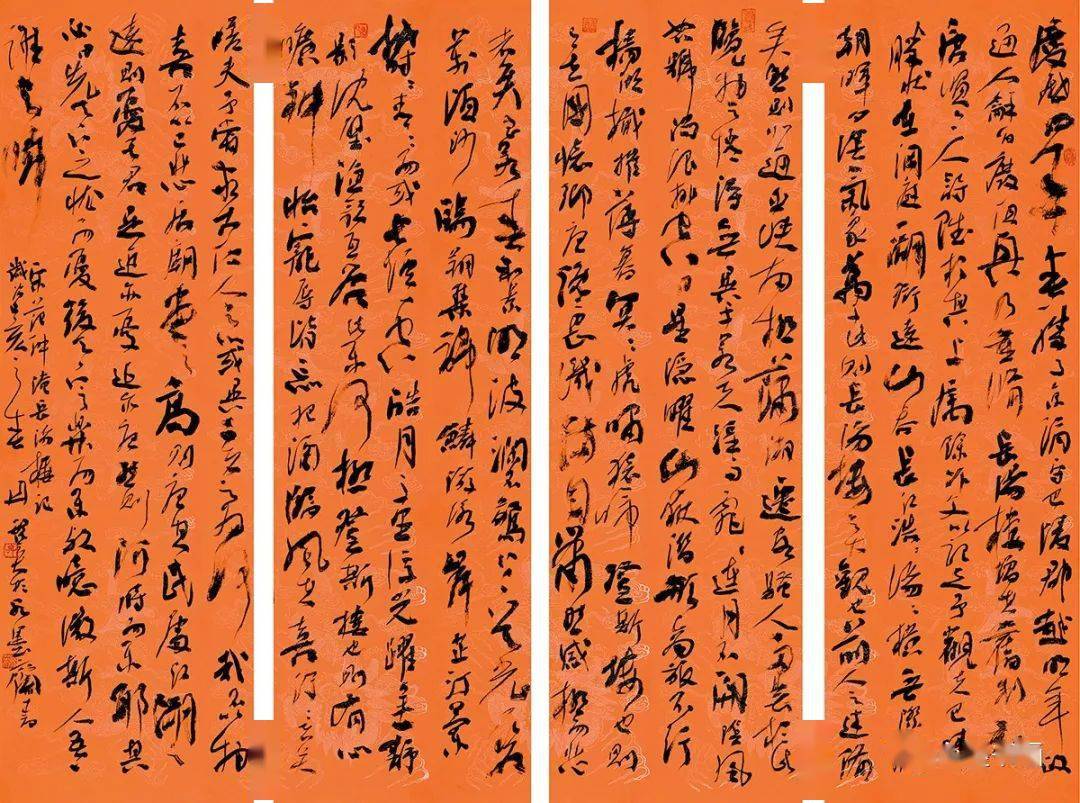 慶曆四年春滕子京謫守巴陵郡越明年政
通人和百廢俱興乃重修岳陽樓增其舊制刻
唐賢今人詩賦於其上屬予作文以記之予觀夫巴陵
勝狀在洞庭一湖銜遠山吞長江浩浩湯湯橫無際涯
朝暉夕陰氣象萬千此則岳陽樓之大觀也前人之述備
矣然則北通巫峽南極瀟湘遷客騷人多會於此
覽物之情得無異乎若夫淫雨霏霏連月不開陰風
怒號濁浪排空日星隱曜山岳潛形商旅不行
檣傾楫摧薄暮冥冥虎嘯猿啼登斯樓也則
有去國懷鄉憂讒畏譏滿目蕭然感極而悲
者矣至若春和景明波瀾不驚上下天光一碧
萬頃沙鷗翔集錦鱗游泳岸芷汀蘭
郁郁青青而或長煙一空皓月千里浮光躍金靜
影沉璧漁歌互答此樂何極登斯樓也則有心
曠神怡寵辱偕忘把酒臨風其喜洋洋者矣
嗟夫予嘗求古仁人之心或異二者之為何哉不以物
喜不以己悲居廟堂之高則憂其民處江湖之
遠則憂其君是進亦憂退亦憂然則何時而樂耶其
必曰先天下之憂而憂後天下之樂而樂歟噫微斯人吾
誰與歸
宋范仲淹岳陽樓記
己亥之春